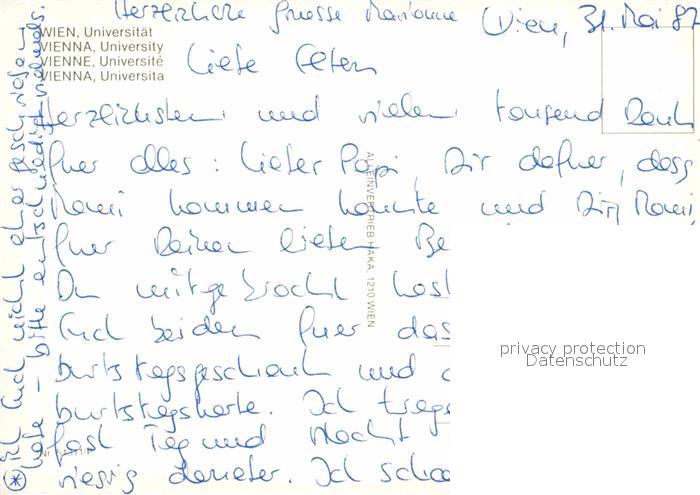 Herzliche Gruesse Marianne
Wien, 31. Mai 87
WIEN, Universität
VIENNA, University
VIENNE, Université
VIENNA, Universita
Liebe Eltern
Herzlichsten und vielen tausend Dank
fuer alles: Lieber Papi, Dir dafuer, dass
Mami kommen konnte und Dir, Mami,
fuer Deinen lieben Be
Du mitgebracht hast
Euch beiden fuer das
burtstagsgeschenk und
burtstagskarte. Ich trage
fast Tag und Nacht
riesig darueber. Ich
ALLEINVERTRIEB HAKA, 1210 WIEN
privacy protection
Datenschutz
Euch nicht eher geschrieben
habe – bitte entschuldigt vielmals.